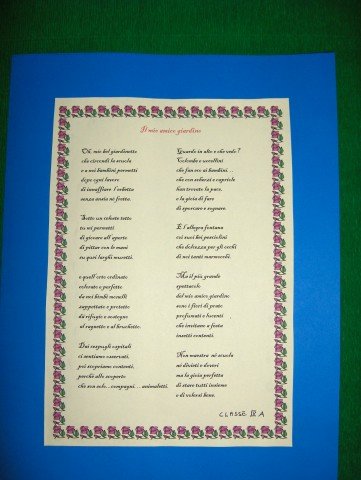 Il mio amico giardino
Oh, mio bel giardinetto
che circondi la scuola
e a noi bambini permetti
dopo ogni lavoro
di innaffiare l'erbetta
senza ansia né fretta.
Sotto un celeste tetto
tu mi permetti
di giocare all'aperto
di pittar con le mani
su quei larghi muretti.
e quell'orto ordinato
colorato e perfetto
da noi bimbi monelli
rispettato e protetto
dà rifugio e sostegno
al ragnetto e al bruchetto.
Dai cespugli ospitali
ci sentiamo osservati,
poi scopriamo contenti,
perché allo scoperto
che son solo...compagni... animaletti.
Guardo in alto e che vedo?
Colombe e uccellini
che fan eco ai bambini...
che con schiazzi e capriole
han trovato la pace,
e la gioia di fare
di sporcare e sognare.
È l'allegra fontana
coi suoi bei pesciolini
che delizia per gli occhi
di noi tanti marmocchi.
Ma il più grande
spettacolo
del mio amico giardino
sono i fiori di prato
profumati e lucenti
che invitano a festa
insetti contenti.
Non maestra né scuola
né divieti e doveri
ma la gioia perfetta
di stare tutti insieme
e di volersi bene.
CLASSE III A